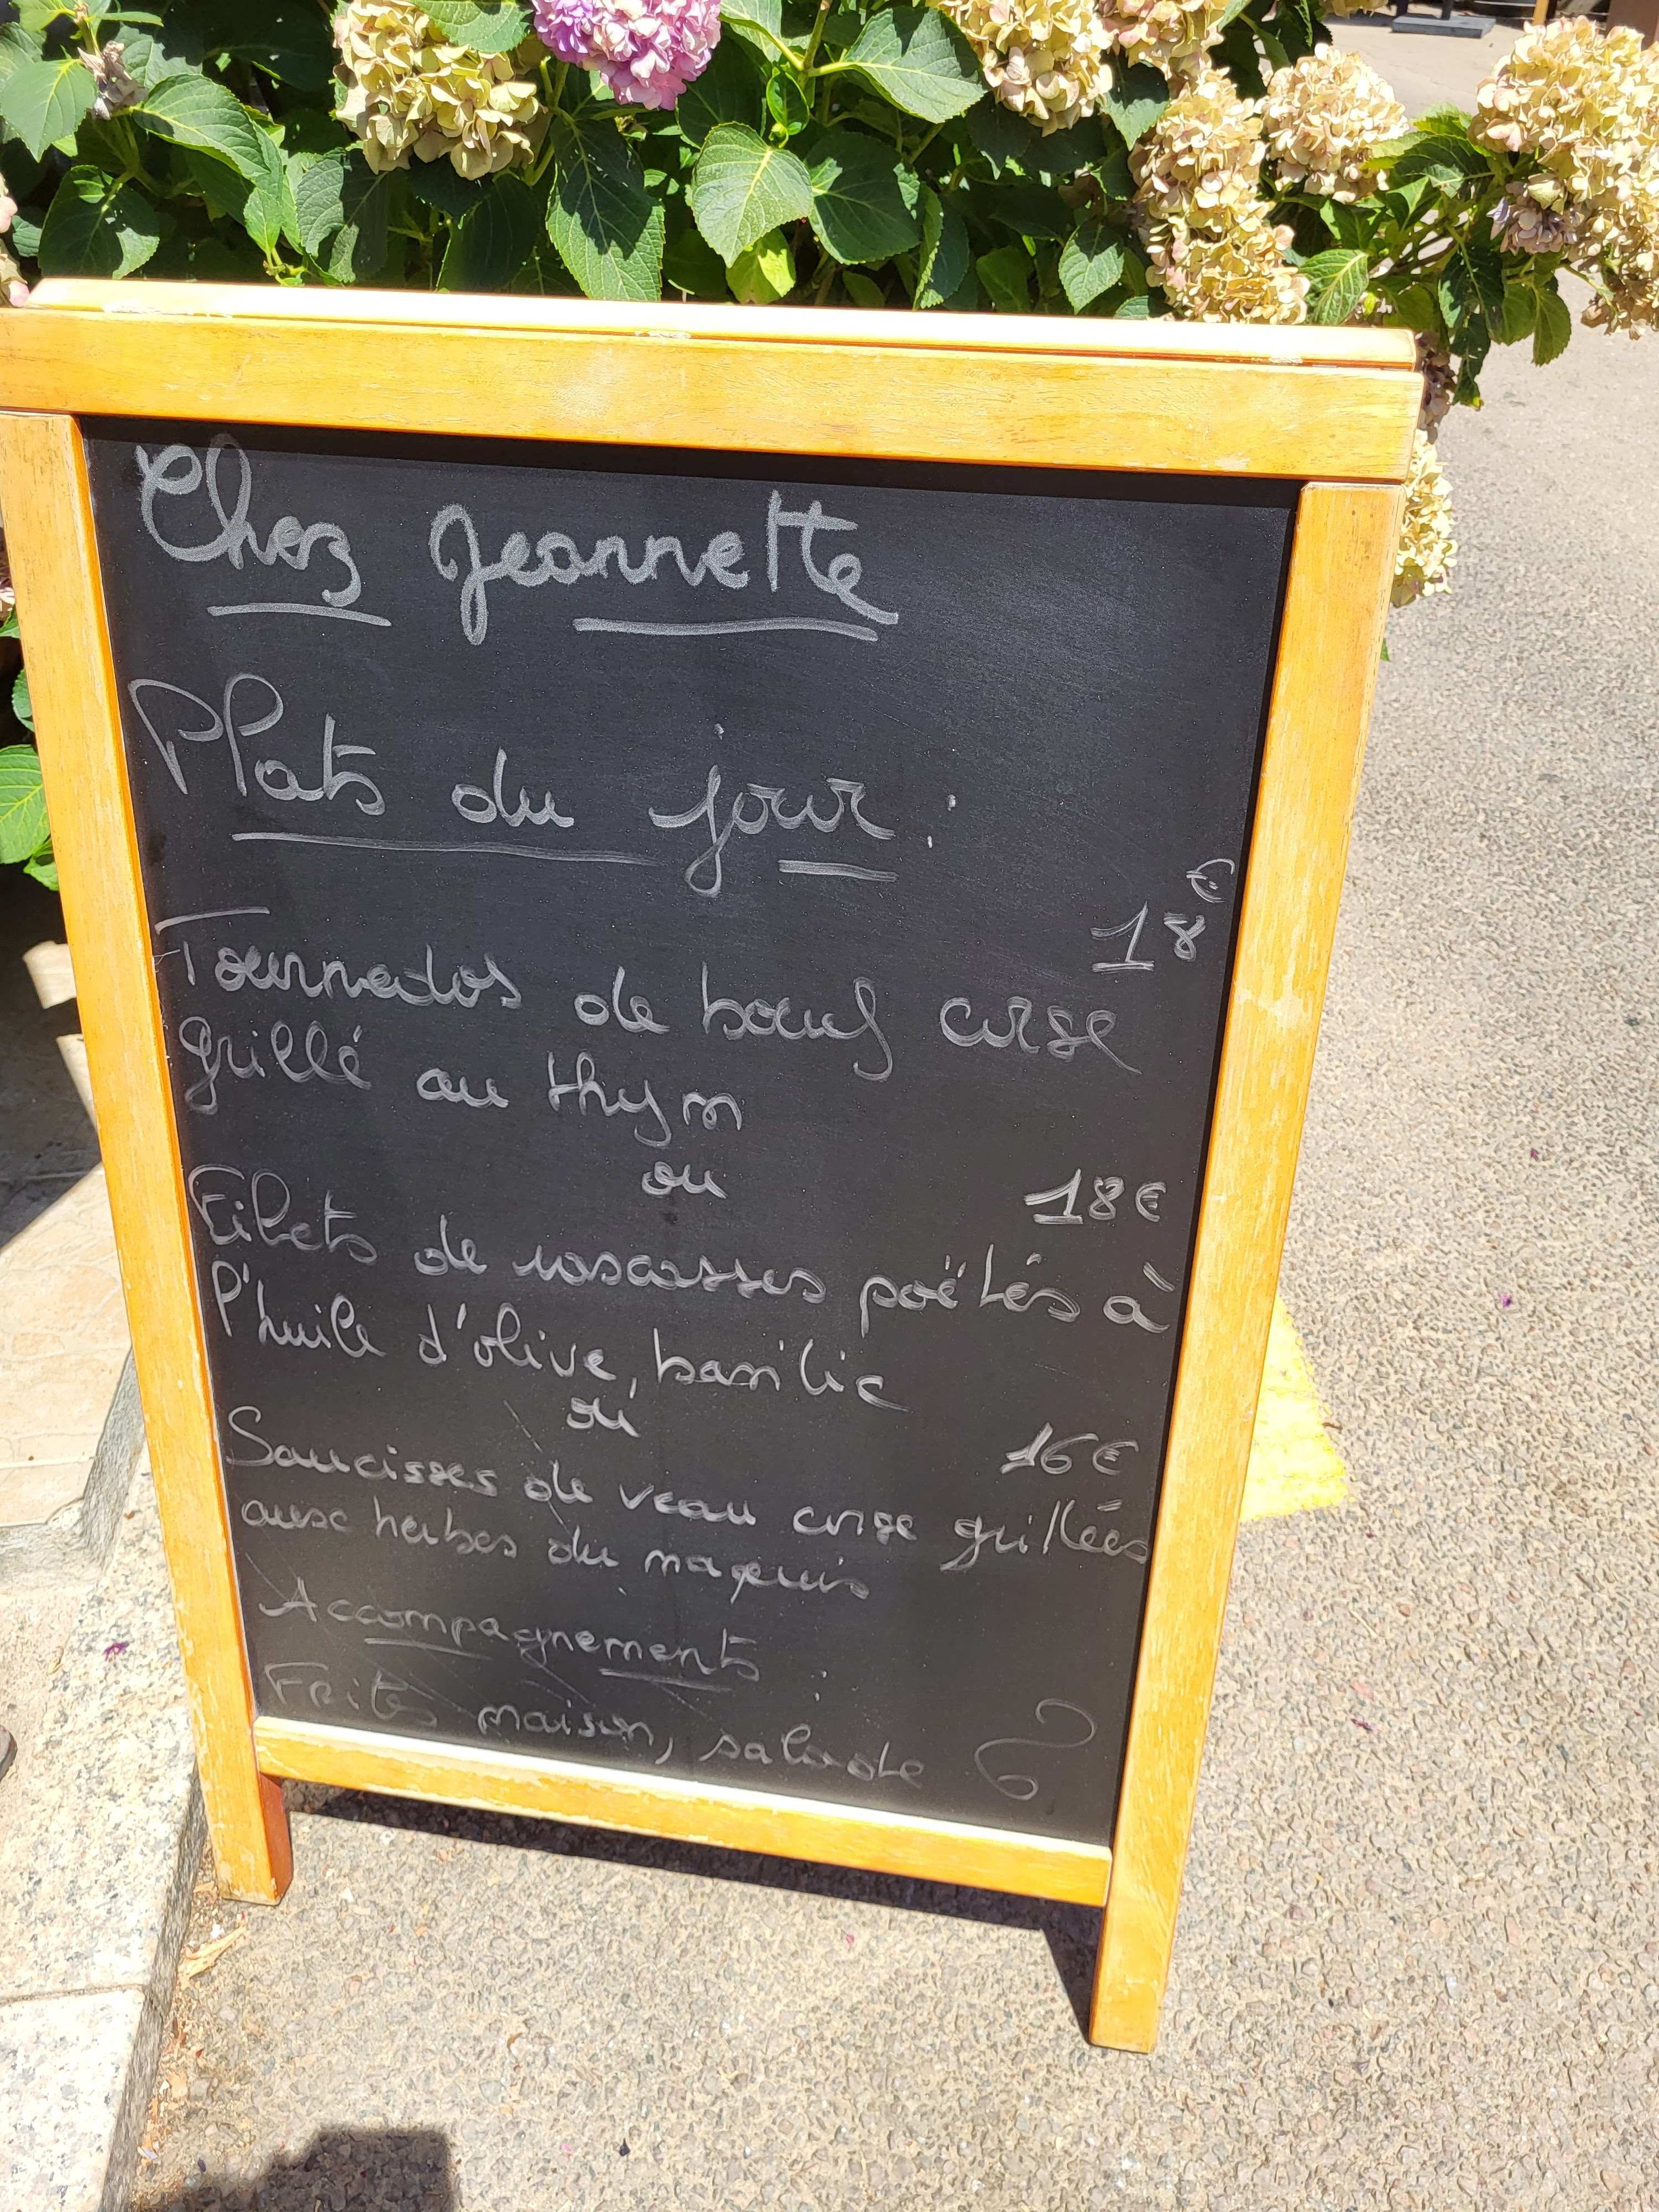 Chez Jeannette
Plats du jour :
18€
Tournedos de boeuf corse
grillé au thym
ou
18€
Filets de rascasses poëlés à
l'huile d'olive, basilic
ou
16€
Saucisses de veau corse grillées
aux herbes du maquis
Accompagnements :
Frites maison, salade